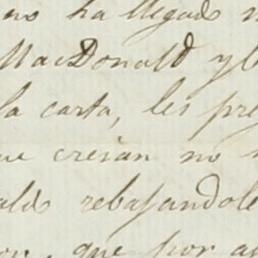 no ha llegado
MacDonald y
la carta, les pre
ue creian no
ald rebajandole
or, que por